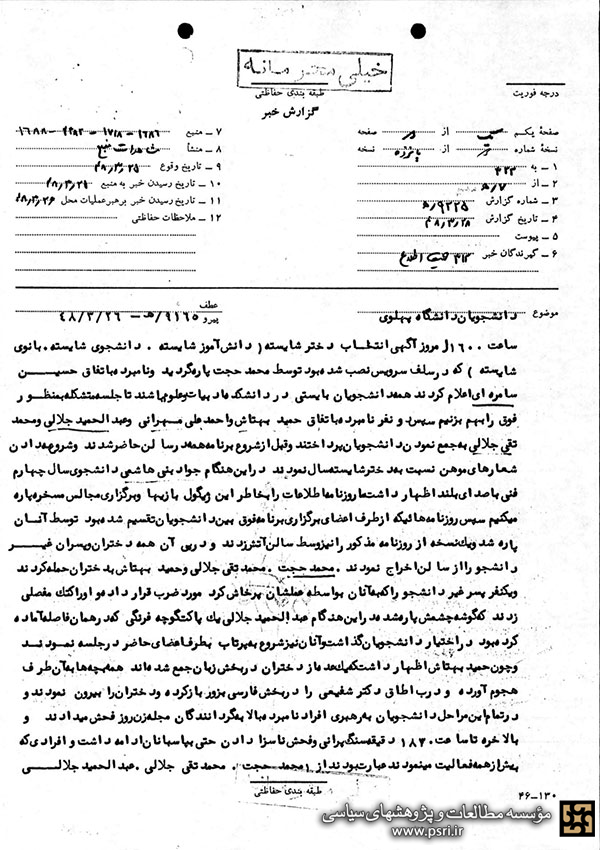 خیلی محرمانه
طبقه بندی حفاظتی
درجه فوریت
گزارش خبر
صفحهٔ یکم از صفحه
نسخهٔ شماره از پانزده نسخه
۱ ـ به ۴۳۳
۲ ـ از ۷/ﻫ
۳ ـ شماره گزارش ۹۲۲۵/ﻫ
۴ ـ تاریخ گزارش ۴۸/۳/۲۸
۵ ـ پیوست
۶ ـ گیرندگان خبر
۷ ـ منبع ۱۶۸۶ - ۱۷۱۸ - - ۱۶۸۸
۸ ـ منشأ مشاهدات منبع
۹ ـ تاریخ وقوع ۴۸/۳/۲۵
۱۰ ـ تاریخ رسیدن خبر به منبع ۴۸/۳/۲۵
۱۱ ـ تاریخ رسیدن خبر برهبر عملیات محل ۴۸/۳/۲۶
۱۲ ـ ملاحظات حفاظتی
موضوع دانشجویان دانشگاه پهلوی
عطف
پیرو ۹۱۶۵/ﻫ - ۴۸/۳/۲۶
ساعت ۱۶۰۰ امروز آگهی انتخاب دختر شایسته ( دانش آموز شایسته . دانشجوی شایسته . بانوی
شایسته ) که در سلف سرویس نصب شده بود توسط محمد حجت پاره گردید و نامبرده باتفاق حسین
سامره ای اعلام کردند همه دانشجویان بایستی در دانشکده ادبیات و علوم باشند تا جلسه متشکله بمنظور
فوق را بهم بزنیم سپس دو نفر نامبرده باتفاق حمید بهتاش و احمد علی مهرانی و عبدالحمید جلالی و محمد
تقی جلالی به جمع نمودن دانشجویان پرداختند و قبل از شروع برنامه همه در سالن حاضر شدند و شروع به دادن
شعارهای موهن نسبت به دختر شایسته سال نمودند در این هنگام جواد بنی هاشمی دانشجوی سال چهارم
فنی با صدای بلند اظهار داشت ما روزنامه اطلاعات را بخاطر این ژیگول بازیها و برگزاری مجالس مسخره پاره
میکنیم سپس روزنامه هائیکه از طرف اعضای برگزاری برنامه فوق بین دانشجویان تقسیم شده بود توسط آنان
پاره شد و یک نسخه از روزنامه مذکور را نیز وسط سالن آتش زدند و در پی آن همه دختران و پسران غیر
دانشجو را از سالن اخراج نمودند . محمد حجت . محمد تقی جلالی و حمید بهتاش به دختران حمله کردند
و یکنفر پسر غیر دانشجو را که به آنان بواسطه عملشان پرخاش کرد مورد ضرب قرار داده و او را کتک مفصلی
زدند که گوشه چشمش پاره شد در این هنگام عبدالحمید جلالی یک پاکت گوجه فرنگی که در همان فاصله آماده
کرده بود در اختیار دانشجویان گذاشت و آنان نیز شروع به پرتاب بطرف اعضای حاضر در جلسه نمودند
و چون حمید بهتاش اظهار داشت که یک عده از دختران در بخش زبان جمع شده اند همه بچه ها به آن طرف
هجوم آورده و درب اطاق دکتر شفیعی را در بخش فارسی بزور باز کرده و دختران را بیرون نمودند و
در تمام این مراحل دانشجویان به رهبری افراد نامبرده بالا به گردانندگان مجله زن روز فحش میدادند و
بالاخره تا ساعت ۱۸۲۰ دقیقه سنگ پرانی و فحش ناسزا دادن حتی بپاسبانان ادامه داشت و افرادی که
بیش از همه فعالیت مینمودند عبارت بودند از : محمد حجت . محمد تقی جلالی . عبدالحمید جلالی
طبقه بندی حفاظتی
۴۶-۱۳۰
مؤسسه مطالعات و پژوهشهای سیاسی
www.psri.ir